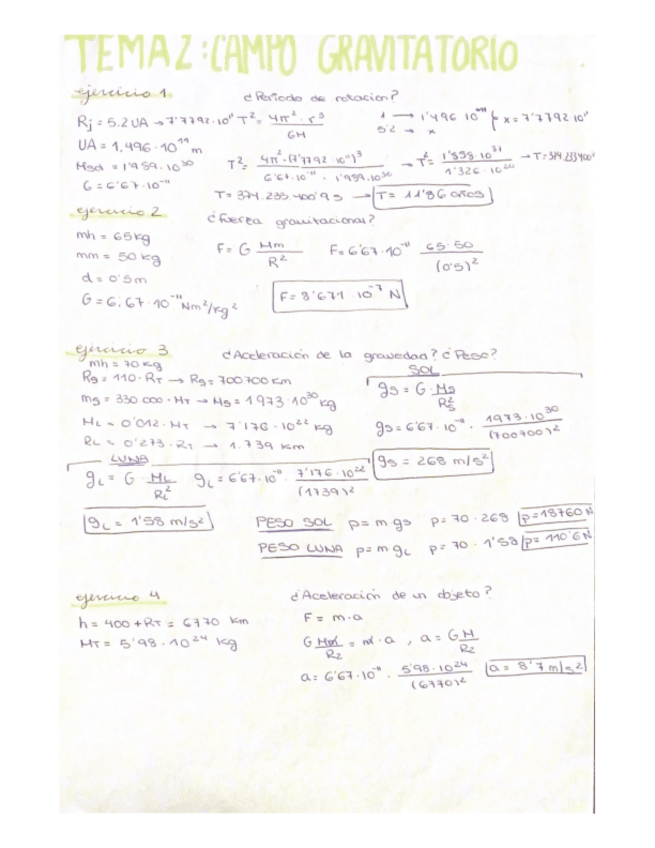 TEMA 2: CAMPO GRAVITATORIO
ejercicio 1
¿Periodo de rotacion?
Rj = 5.2 UA → 7'7792·10¹¹
T² = 4π²·r³ / GM
1 → 1'496·10¹¹ } x = 7'7792·10¹¹
5'2 → x
UA = 1,496·10¹¹ m
Msol = 1'989·10³⁰
G = 6'67·10⁻¹¹
T² = 4π²·(7'7792·10¹¹)³ / 6'67·10⁻¹¹·1'989·10³⁰ → T² =
T = 374.235.400'9 s → T = 11'86 años
ejercicio 2
¿Fuerza gravitacional?
mh = 65 kg
mm = 50 kg
d = 0'5 m
G = 6,67·10⁻¹¹ Nm²/kg²
F = G Mm / R²
F = 6'67·10⁻¹¹ 65·50 / (0'5)²
F = 8'671·10⁻⁷ N
ejercicio 3
¿Aceleración de la gravedad? ¿Peso?
mh = 70 kg
Rs = 110·RT → Rs = 700700 km
ms = 330 000·MT → Ms = 1973·10³⁰ kg
ML = 0'012·MT → 7'176·10²² kg
RL = 0'273·RT → 1.739 km
SOL
gs = G·Ms / Rs²
gs = 6'67·10⁻¹¹·1973·10³⁰ / (700700)²
gs = 268 m/s²
LUNA
gL = G·ML / RL²
gL = 6'67·10⁻¹¹·7'176·10²² / (1739)²
gL = 1'58 m/s²
PESO SOL p = m gs p = 70·268 p = 18760 N
PESO LUNA p = m gL p = 70·1'58 p = 110'6 N
ejercicio 4
¿Aceleración de un objeto?
h = 400 + RT = 6770 km
MT = 5'98·10²⁴ kg
F = m·a
G Mm / R² = m·a , a = G M / R²
a = 6'67·10⁻¹¹·5'98·10²⁴ / (6770)²
a = 8'7 m/s²